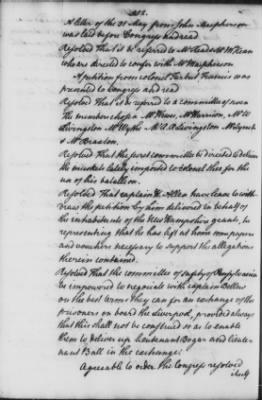 A letter of the 31 May from John Macpherson
was laid before Congress and read
Resolved That it be referred to Mr Read & Mr McKean
who are directed to confer with Mr Macpherson
A petition from colonel Turbut Francis was
presented to Congress and read
Resolved That it be referred to a committee of seven
the members chosen Mr Hewes, Mr Harrison, Mr W
Livingston Mr Wythe Mr R R Livingston Mr Lynch
& Mr Braxton.
Resolved That the secret committee be directed to deliver
the muskets lately imported to Colonel Shee for the
use of his batallion.
Resolved That captain H. Allen have leave to with-
draw the petition by him delivered in behalf of
the inhabitants of the New Hampshire grants, he
representing that he has left at home some papers
and vouchers necessary to support the allegations
therein contained.
Resolved That the committee of safety of Pensylvania
be impowered to negociate with captain Bellew
on the best terms they can for an exchange of the
prisoners on board the Liverpool, provided always
that this shall not be construed so as to enable
them to deliver up lieutenant Boger and lieute-
nant Ball in the exchange.
Agreeable to order the Congress resolved
itself